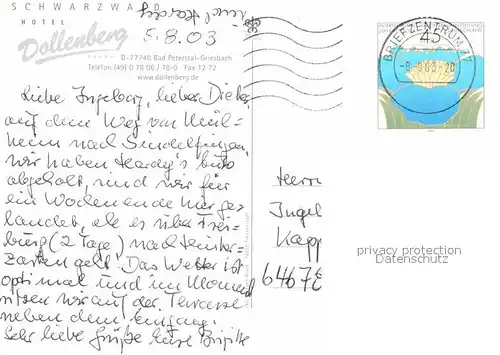 SCHWARZWALD
HOTEL
Dollenberg
D-77740 Bad Peterstal-Griesbach
Telefon (49) 0 78 06 / 78-0 Fax 12 72
www.dollenberg.de
5.8.03
BRIEFZENTRUM 77
-8-9803-20
45
Liebe Ingeborg, lieber Dieter,
auf dem Weg von Müll-
heim nach Sindelfingen
wir haben Hardy's Auto
abgeholt, sind wir für
ein Wochenende hier ge-
landet, ehe es über Frei-
burg (2 Tage) nach Hinter-
zarten geht. Das Wetter ist
optimal und im Moment
sitzen wir auf der Terrasse
neben dem Eingang.
Sehr liebe Grüße Eure Brigitte
Herrn
Ingel
Kapp
64678
privacy protection
Datenschutz